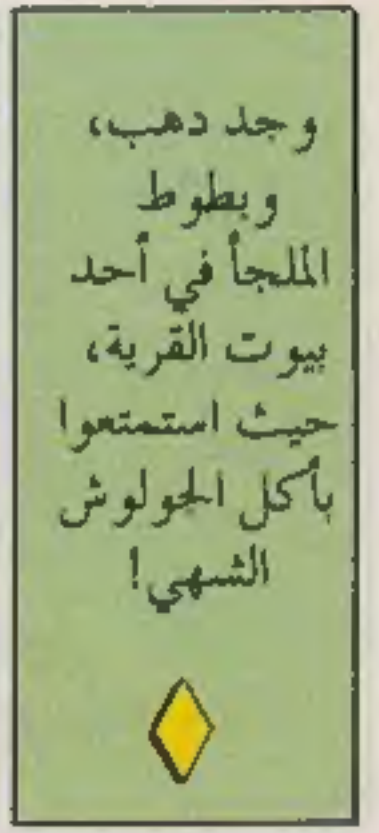 وجد دهب،
وبطوط
الملجأ في أحد
بيوت القرية،
حيث استمتعوا
بأكل الجولوش
الشهي!